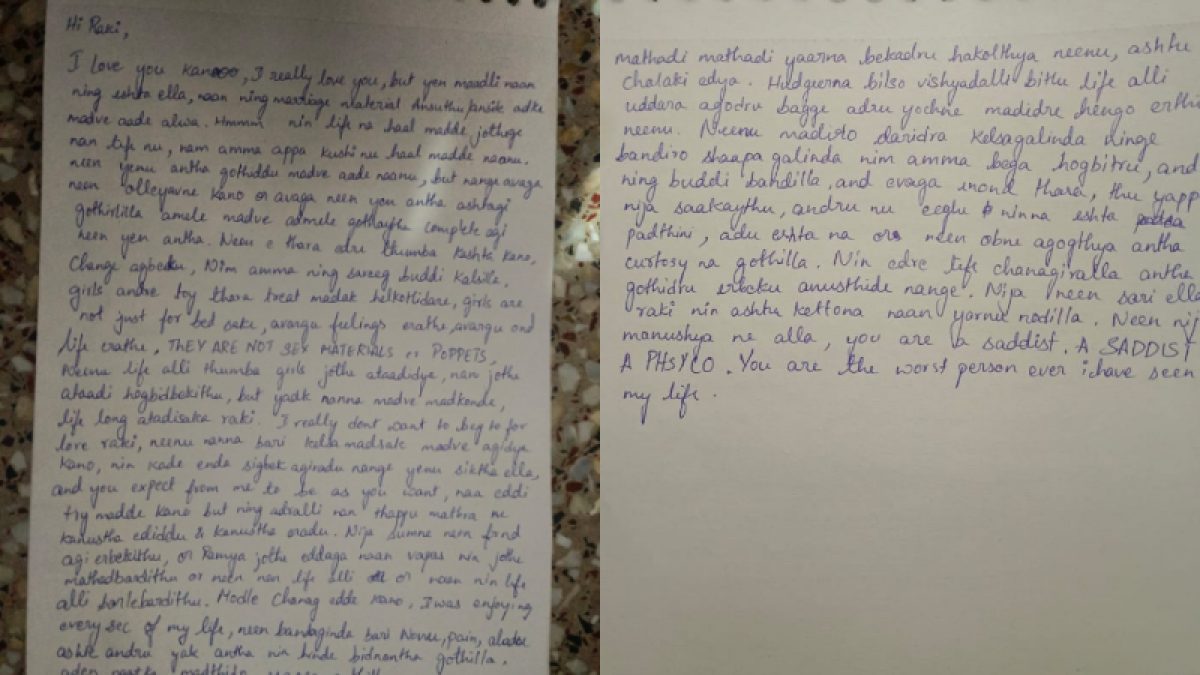 Hi Raki,
I love you kanooo, I really love you, but yen maadli naan
ning eshta ella, naan ning marriage material Ansuthu anside adke
madve aade alwa. Hmmm nin life na haal madde jothege
nan life nu, nam amma appa kushi nu haal madde naanu.
neen yenu antha gothiddu madve aade naanu, but nange avaga
neen olleyavne kano or avaga neen yen antha ashtagi
gothirlilla amele madve admele gothaytha complete agi
neen yen antha. Neenu e thara adru thumba kashta kano,
Change agbeku, Nim amma ning sareeg buddi kalsilla,
girls andre toy thara treat madak helkotidare, girls are
not just for bed sake, avargu feelings erathe, avargu ond
life erathe, THEY ARE NOT SEX MATERIALS or POPPETS,
Neenu life alli thumba girls jothe ataadidye, nan jothe
ataadi hogbidbekithu, but yadk nanna madve madkonde,
life long atadisaka raki. I really dont want to beg to for
love raki, neenu nanna bari kelsa madsak madve agidya
kano, nin kade enda sigbek agiradu nange yenu siktha ella,
and you expect from me to be as you want, naa eddi
try madde kano but ning adralli nan thappu mathra ne
kanustha ediddu & kanustha eradu. Nija sumne neen frnd
agi erbekithu, or Ramya jothe eddaga naan vapas nin jothe
mathadbardithu or neen nan life alli or naan nin life
alli barlebardithu. Modle Chanag edde kano, I was enjoying
every sec of my life, neen bandaginda bari Novu, pain, aladu
ashte andru yak antha nin hinde bidnantha gothilla.
mathadi mathadi yaarna bekadru hakolthya neenu, ashtu
chalaki edya. Hudgeerna bilso vishyadalli bittu life alli
uddara agodru bagge adru yochne madidre hengo erthi
neenu. Neenu madirो daridra kelsagalinda ninge
bandiro shaapa galinda nim amma bega hogbitru, and
ning buddi bandilla, and evaga enond thara, thu yapp
nija saakaythu, andru nu eeghu ninna eshta
padthini, adu eshta na or neen obne agogthya antha
curtosy na gothilla. Nin edre life chanagiralla antha
gothidru erbeku anusthide nange. Nija neen sari ella
raki nin ashtu kettona naan yarnu nodilla. Neen nij
manushya ne alla, you are a saddist. A SADDIST
A PHSYCO. You are the worst person ever i have seen
my life.